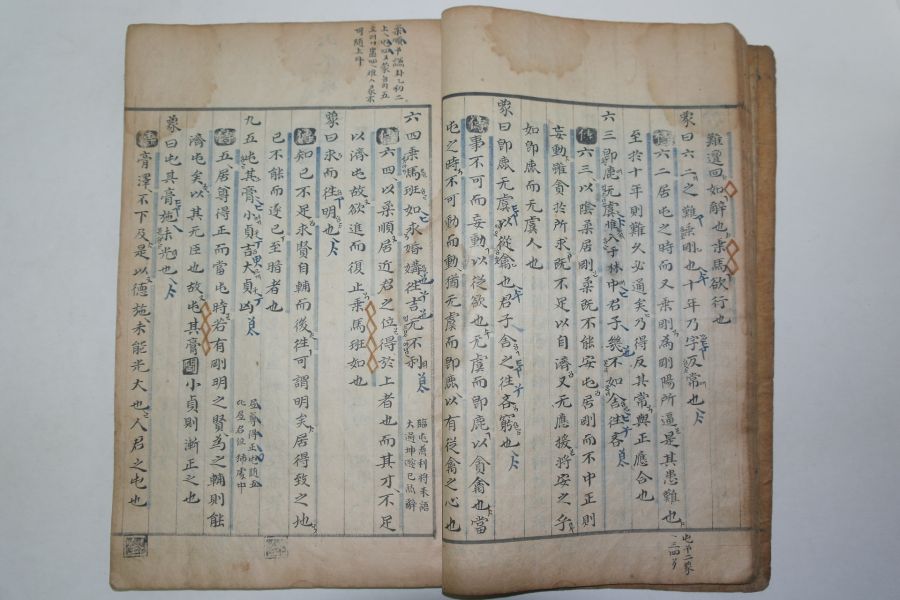 難邅回如辭也乘馬欲行也
象曰六二之難乘剛也十年乃字反常也
傳六二居屯之時而又乘剛爲剛陽所逼是其患難也
至於十年則難久必通矣乃得反其常與正應合也
六三卽鹿无虞惟入于林中君子幾不如舍往吝
傳六三以陰柔居剛柔旣不能安屯居剛而不中正則
妄動雖貪於所求旣不足以自濟又无應援將安之乎
如卽鹿而无虞人也
象曰卽鹿无虞以從禽也君子舍之往吝窮也
傳事不可而妄動以從欲也无虞而卽鹿以貪禽也當
屯之時不可動而動猶无虞而卽鹿以有從禽之心也
六四乘馬班如求婚媾往吉无不利
傳六四以柔順居近君之位得於上者也而其才不足
以濟屯故欲進而復止乘馬班如也
象曰求而往明也
傳知己不足求賢自輔而後往可謂明矣居得致之地
己不能而遂已至暗者也
九五屯其膏小貞吉大貞凶
傳五居尊得正而當屯時若有剛明之賢爲之輔則能
濟屯矣以其无臣也故屯其膏 小貞則漸正之也
象曰屯其膏施未光也
傳膏澤不下及是以德施未能光大也人君之屯也